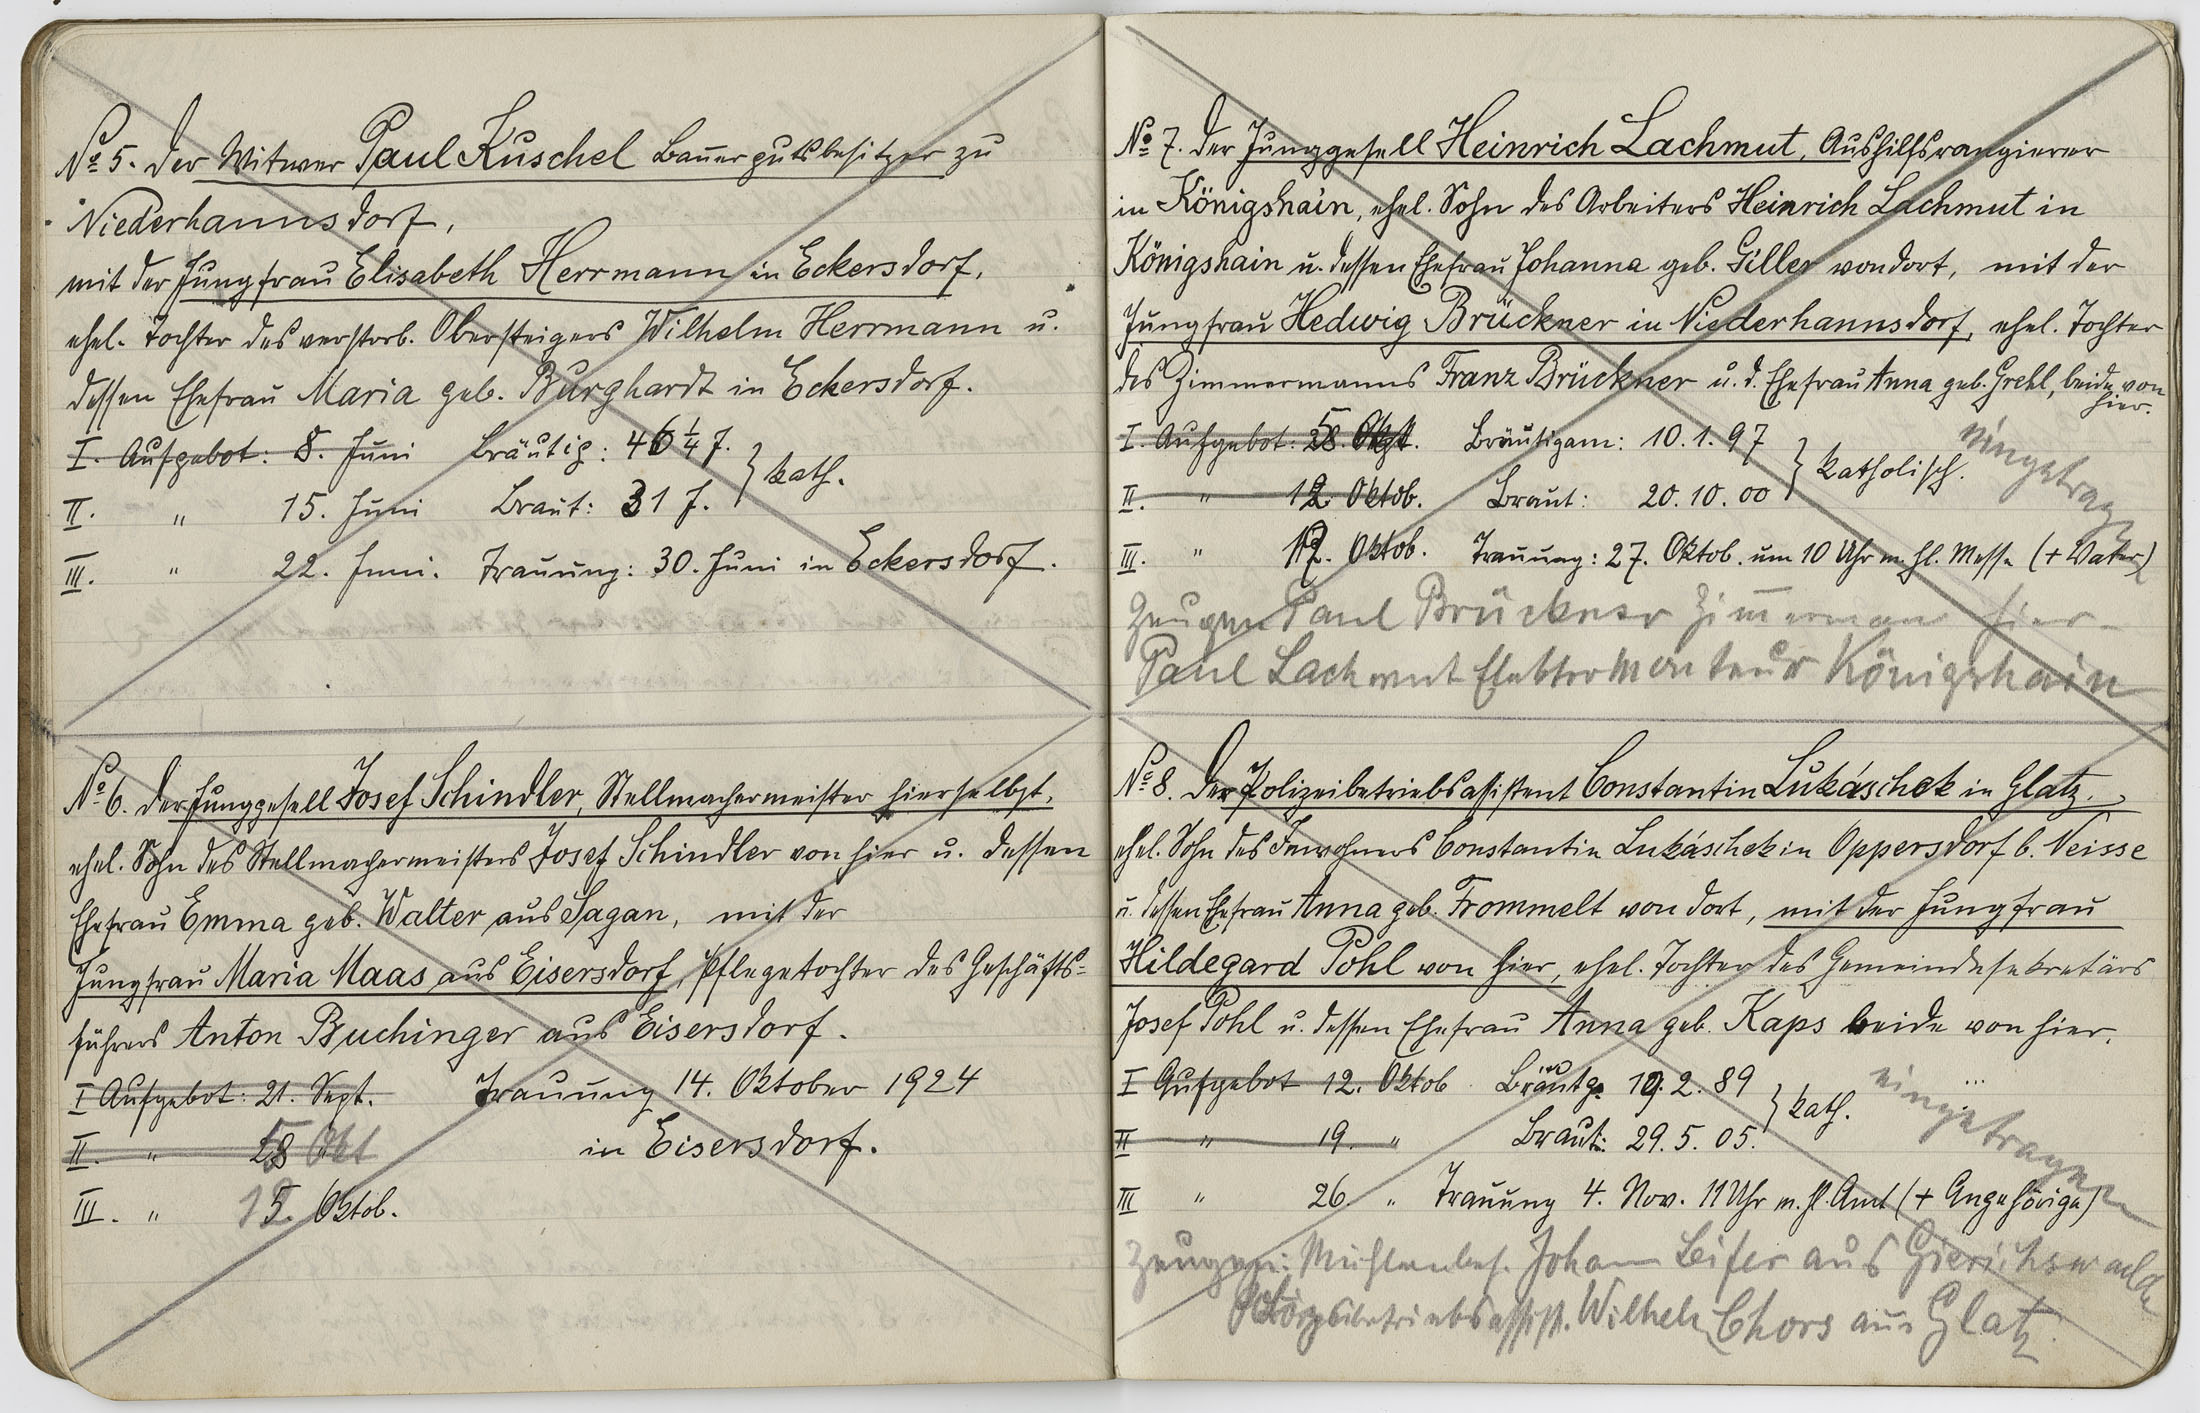 No 5. Der Witwer Paul Kuschel Bauergutsbesitzer zu
Niederhannsdorf,
mit der Jungfrau Elisabeth Herrmann in Eckersdorf,
ehel. Tochter des verstorb. Obersteigers Wilhelm Herrmann u.
dessen Ehefrau Maria geb. Burghardt in Eckersdorf.
I. Aufgebot: 8. Juni Bräutig: 46 1/4 J. } kath.
II. " 15. Juni Braut: 31 J.
III. " 22. Juni. Trauung: 30. Juni in Eckersdorf.
No 6. Der Junggesell Josef Schindler, Stellmachermeister hierselbst,
ehel. Sohn des Stellmachermeisters Josef Schindler von hier u. dessen
Ehefrau Emma geb. Walter aus Sagan, mit der
Jungfrau Maria Maas aus Eisersdorf, Pflegetochter des Geschäfts=
führers Anton Buchinger aus Eisersdorf.
I Aufgebot: 21. Sept. Trauung 14. Oktober 1924
II. " 5 Okt in Eisersdorf.
III. " 12. Oktob.
No 7. Der Junggesell Heinrich Lachmut, Aushilfsrangierer
in Königshain, ehel. Sohn des Arbeiters Heinrich Lachmut in
Königshain u. dessen Ehefrau Johanna geb. Giller von dort, mit der
Jungfrau Hedwig Brückner in Niederhannsdorf, ehel. Tochter
des Zimmermanns Franz Brückner u. d. Ehefrau Anna geb. Grehl, beide von
hier.
I. Aufgebot: 5. Okt. Bräutigam: 10. 1. 97 } katholisch. eingetragen
II. " 12. Oktob. Braut: 20. 10. 00
III. " 19. Oktob. Trauung: 27. Oktob. um 10 Uhr m. hl. Messe (+ Vater)
Zeugen Paul Brückner Zimmermann hier
Paul Lachmut Elektromonteur Königshain
No 8. Der Polizeibetriebsassistent Constantin Lukáschek in Glatz.
ehel. Sohn des Inwohners Constantin Lukáschek in Oppersdorf b. Neisse
u. dessen Ehefrau Anna geb. Frommelt von dort, mit der Jungfrau
Hildegard Pohl von hier, ehel. Tochter des Gemeindesekretärs
Josef Pohl u. dessen Ehefrau Anna geb. Kaps beide von hier.
I Aufgebot 12. Oktob Bräutg. 19. 2. 89 } kath. eingetragen
II " 19. " Braut: 29. 5. 05.
III " 26. " Trauung 4. Nov. 11 Uhr m. hl. Amt (+ Angehörige)
Zeugen: Mühlenbes. Johann aus Gierichswalde
Wilhelm Chors aus Glatz.